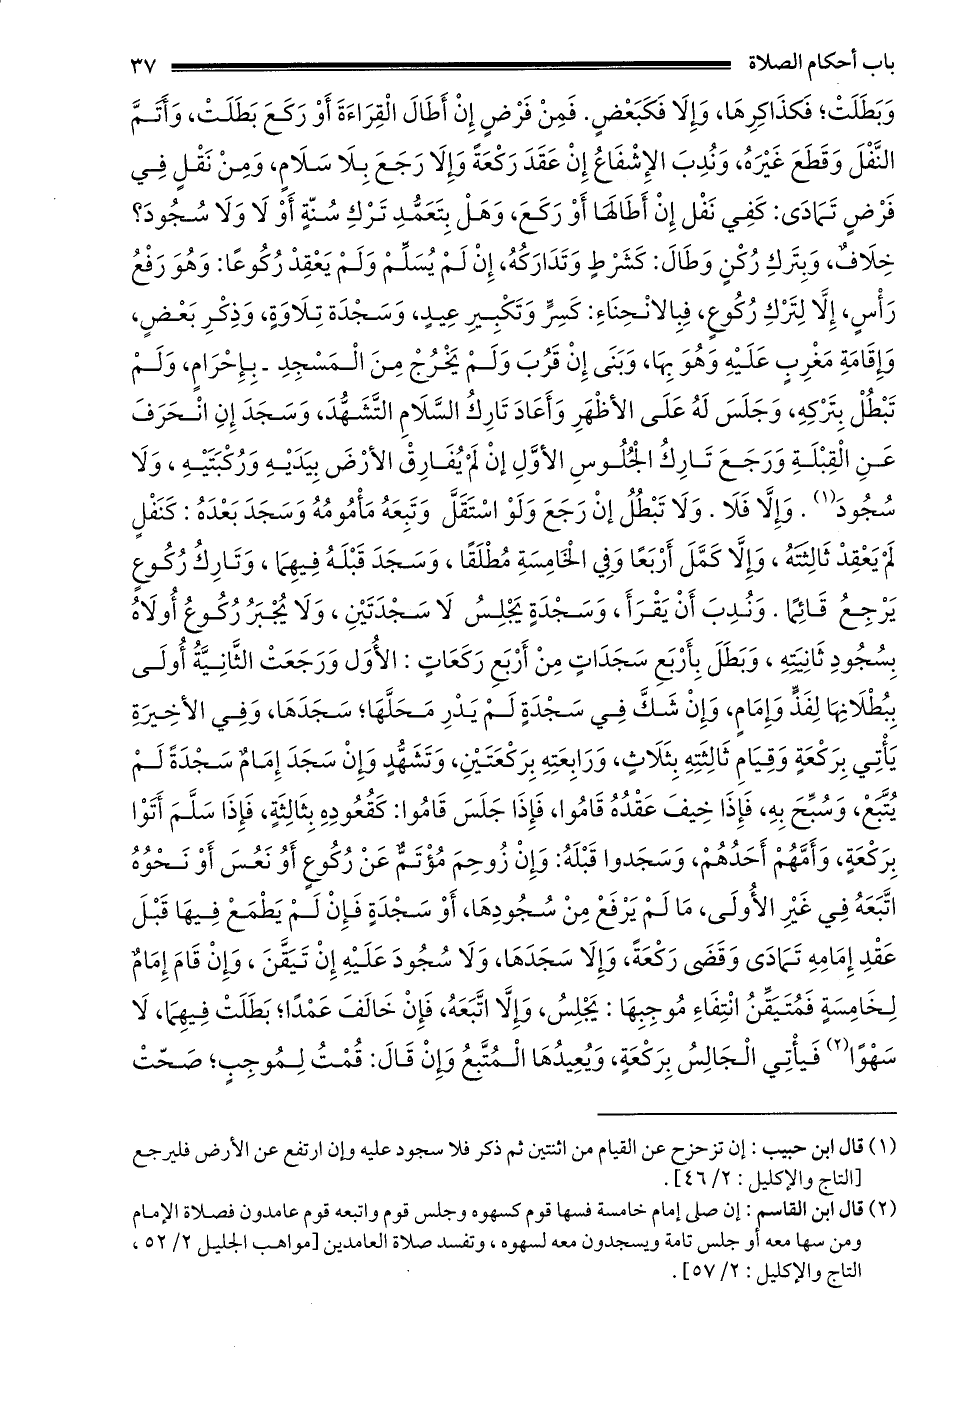 باب أحكام الصلاة ٣٧
وَبَطَلَتْ؛ فَكَذَاكِرِهَا، وَإِلَا فَكَبَعْضٍ. فَمِنْ فَرْضٍ إِنْ أَطَالَ الْقِرَاءَةَ أَوْ رَكَعَ بَطَلَتْ، وَأَتَمَّ
النَّفْلَ وَقَطَعَ غَيْرَهُ، وَنُدِبَ الإِشْفَاعُ إِنْ عَقَدَ رَكْعَةً وَإِلَا رَجَعَ بِلَا سَلَامٍ، وَمِنْ نَفْلٍ فِي
فَرْضٍ تَمَادَى: كَفِي نَفْلٍ إِنْ أَطَالَهَا أَوْ رَكَعَ، وَهَلْ بِتَعَمُّدِ تَرْكِ سُنَّةٍ أَوْ لَا وَلَا سُجُودَ؟
خِلَافٌ، وَبِتَركِ رُكْنٍ وَطَالَ: كَشَرْطٍ وَتَدَارَكَهُ، إِنْ لَمْ يُسَلِّمْ وَلَمْ يَعْقِدْ رُكُوعًا: وَهُوَ رَفْعُ
رَأْسٍ، إِلَّا لِتَرْكِ رُكُوعٍ، فَبِالانْحِنَاءِ: كَسِرٍّ وَتَكْبِيرِ عِيدٍ، وَسَجْدَةِ تِلَاوَةٍ، وَذِكْرِ بَعْضٍ،
وَإِقَامَةِ مَغْرِبٍ عَلَيْهِ وَهُوَ بِهَا، وَبَنَى إِنْ قَرُبَ وَلَمْ يَخْرُجْ مِنَ الْمَسْجِدِ ـ بِإِحْرَامٍ، وَلَمْ
تَبْطُلْ بِتَرْكِهِ، وَجَلَسَ لَهُ عَلَى الأَظْهَرِ وَأَعَادَ تَارِكُ السَّلَامِ التَّشَهُّدَ، وَسَجَدَ إِنِ انْحَرَفَ
عَنِ الْقِبْلَةِ وَرَجَعَ تَارِكُ الجُلُوسِ الأَوَّلِ إِنْ لَمْ يُفَارِقِ الأَرْضَ بِيَدَيْهِ وَرُكْبَتَيْهِ ، وَلَا
سُجُودَ(١) . وَإِلَّا فَلَا . وَلَا تَبْطُلُ إِنْ رَجَعَ وَلَوْ اسْتَقَلَّ وَتَبِعَهُ مَأْمُومُهُ وَسَجَدَ بَعْدَهُ : كَنَفْلٍ
لَمْ يَعْقِدْ ثَالِثَتَهُ ، وَإِلَّا كَمَّلَ أَرْبَعًا وَفِي الخَامِسَةِ مُطْلَقًا ، وَسَجَدَ قَبْلَهُ فِيهِمَا ، وَتَارِكُ رُكُوعٍ
يَرْجِعُ قَائِمًا . وَنُدِبَ أَنْ يَقْرَأَ ، وَسَجْدَةٍ يَجْلِسُ لَا سَجْدَتَيْنِ ، وَلَا يُجْبَرُ رُكُوعُ أُولَاهُ
بِسُجُودِ ثَانِيَتِهِ ، وَبَطَلَ بِأَرْبَعِ سَجَدَاتٍ مِنْ أَرْبَعِ رَكَعَاتٍ : الأُوَل وَرَجَعَتْ الثَّانِيَةُ أُولَى
بِبُطْلَانِهَا لِفَذٍّ وَإِمَامٍ، وَإِنْ شَكَّ فِي سَجْدَةٍ لَمْ يَدْرِ مَحَلَّهَا؛ سَجَدَهَا، وَفِي الأَخِيرَةِ
يَأْتِي بِرَكْعَةٍ وَقِيَامِ ثَالِثَتِهِ بِثَلَاثٍ، وَرَابِعَتِهِ بِرَكْعَتَيْنِ، وَتَشَهُّدٍ وَإِنْ سَجَدَ إِمَامٌ سَجْدَةً لَمْ
يُتَّبَعْ، وَسُبِّحَ بِهِ، فَإِذَا خِيفَ عَقْدُهُ قَامُوا، فَإِذَا جَلَسَ قَامُوا: كَقُعُودِهِ بِثَالِثَةٍ، فَإِذَا سَلَّمَ أَتَوْا
بِرَكْعَةٍ، وَأَمَّهُمْ أَحَدُهُمْ، وَسَجَدوا قَبْلَهُ: وَإِنْ زُوحِمَ مُؤْتَمٌّ عَنْ رُكُوعٍ أَوْ نَعُسَ أَوْ نَحْوُهُ
اتَّبَعَهُ فِي غَيْرِ الأُولَى، مَا لَمْ يَرْفَعْ مِنْ سُجُودِهَا، أَوْ سَجْدَةٍ فَإِنْ لَمْ يَطْمَعْ فِيهَا قَبْلَ
عَقْدِ إِمَامِهِ تَمَادَى وَقَضَى رَكْعَةً، وَإِلَا سَجَدَهَا، وَلَا سُجُودَ عَلَيْهِ إِنْ تَيَقَّنَ ، وَإِنْ قَامَ إِمَامٌ
لِخَامِسَةٍ فَمُتَيَقِّنُ انْتِفَاءِ مُوجِبِهَا : يَجْلِسُ، وَإِلَّا اتَّبَعَهُ، فَإِنْ خَالَفَ عَمْدًا؛ بَطَلَتْ فِيهِمَا، لَا
سَهْوًا(٢) فَيأْتِي الْجَالِسُ بِرَكْعَةٍ، وَيُعِيدُهَا الْمُتَّبِعُ وَإِنْ قَالَ: قُمْتُ لِمُوجِبٍ؛ صَحَّتْ
(١) قال ابن حبيب : إن تزحزح عن القيام من اثنتين ثم ذكر فلا سجود عليه وإن ارتفع عن الأرض فليرجع
[التاج والإكليل : ٢/ ٤٦] .
(٢) قال ابن القاسم : إن صلى إمام خامسة فسها قوم كسهوه وجلس قوم واتبعه قوم عامدون فصلاة الإمام
ومن سها معه أو جلس تامة ويسجدون معه لسهوه ، وتفسد صلاة العامدين [مواهب الجليل ٢/ ٥٢ ،
التاج والإكليل : ٢/ ٥٧] .